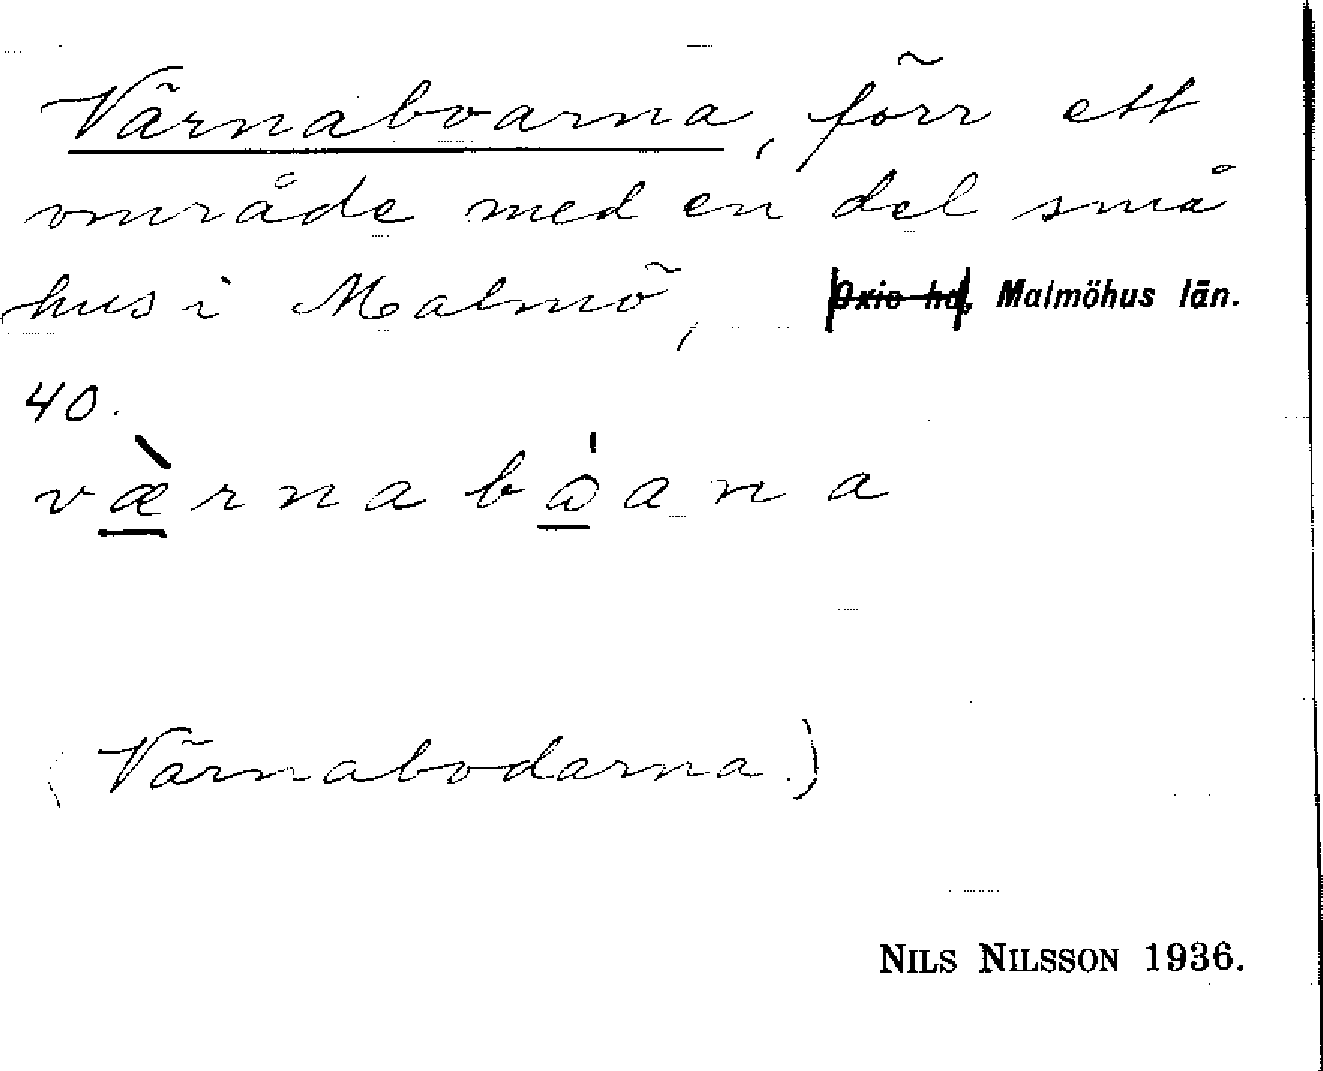 Värnaboarna, förr ett
område med en del små
hus i Malmö, Oxie hd, Malmöhus län.
40.
værnabωana
(Värnabodarna.)
NILS NILSSON 1936.